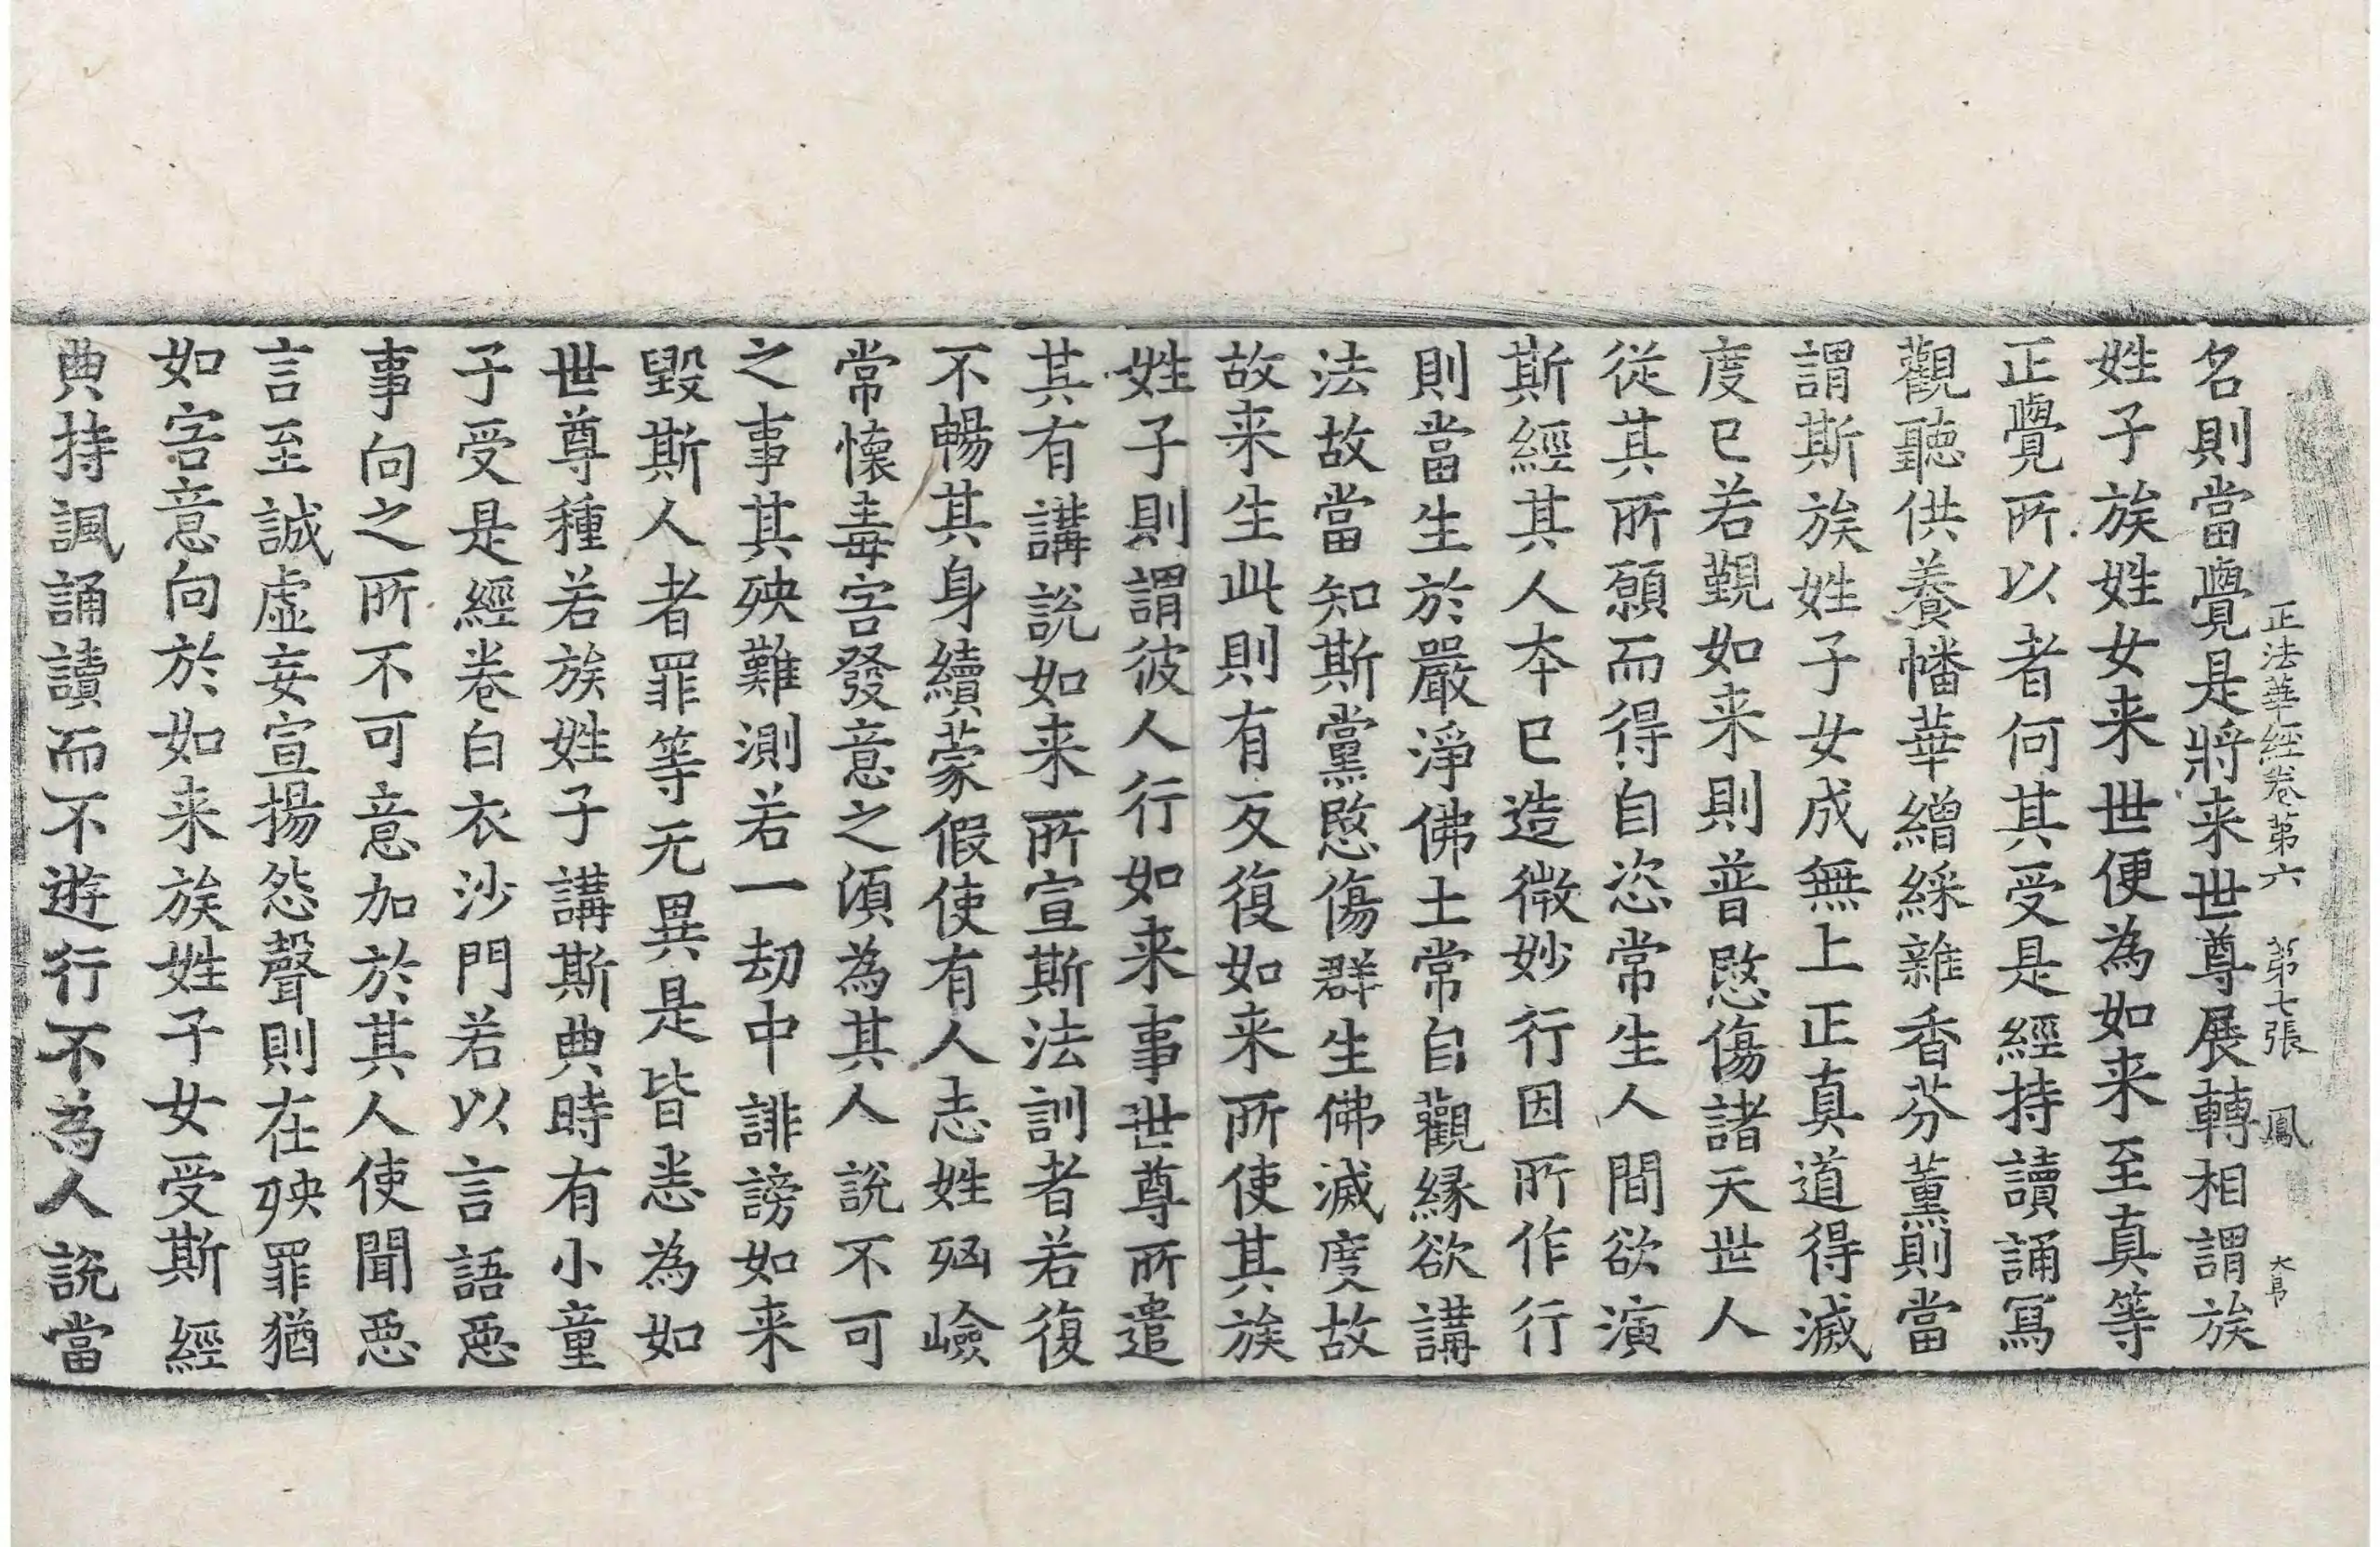 正法華經卷第六 第七張 鳳
名則當覺是將来世尊展轉相謂族
姓子族姓女来世便為如来至真等
正覺所以者何其受是經持讀誦寫
觀聽供養幡華繒綵雜香芬薰則當
謂斯族姓子女成無上正真道得滅
度已若覲如来則普愍傷諸天世人
從其所願而得自恣常生人間欲演
斯經其人本已造微妙行因所作行
則當生於嚴淨佛土常自觀縁欲講
法故當知斯黨愍傷群生佛滅度故
故来生此則有反復如来所使其族
姓子則謂彼人行如来事世尊所遣
其有講說如来所宣斯法訓者若復
不暢其身續蒙假使有人志姓㐫嶮
常懷毒害發意之湏為其人說不可
之事其殃難測若一劫中誹謗如来
毀斯人者罪等无異是皆悉為如
世尊種若族姓子講斯典時有小童
子受是經卷白衣沙門若以言語惡
事向之所不可意加於其人使聞惡
言至誠虛妄宣揚怨聲則在殃罪猶
如害意向於如来族姓子女受斯經
典持諷誦讀而不遊行不為人說當